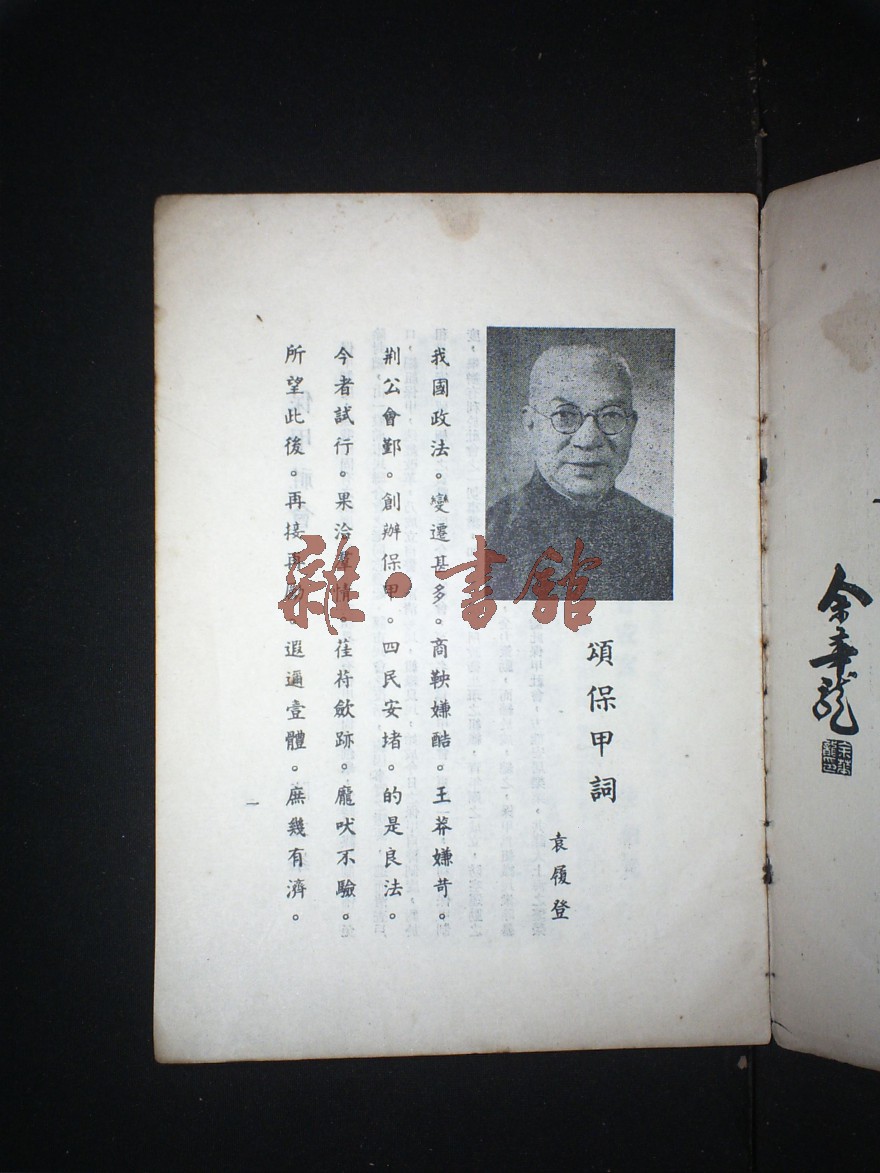 頌保甲詞
袁履登
我國政法。變遷甚多。商鞅嫌酷。王莽嫌苛。
荆公會鄞。創辦保甲。四民安堵。的是良法。
今者試行。果洽羣情。萑苻歛跡。厖吠不驗。
所望此後。再接再勵。遐邇壹體。庶幾有濟。
一
雜·書館
余華龍